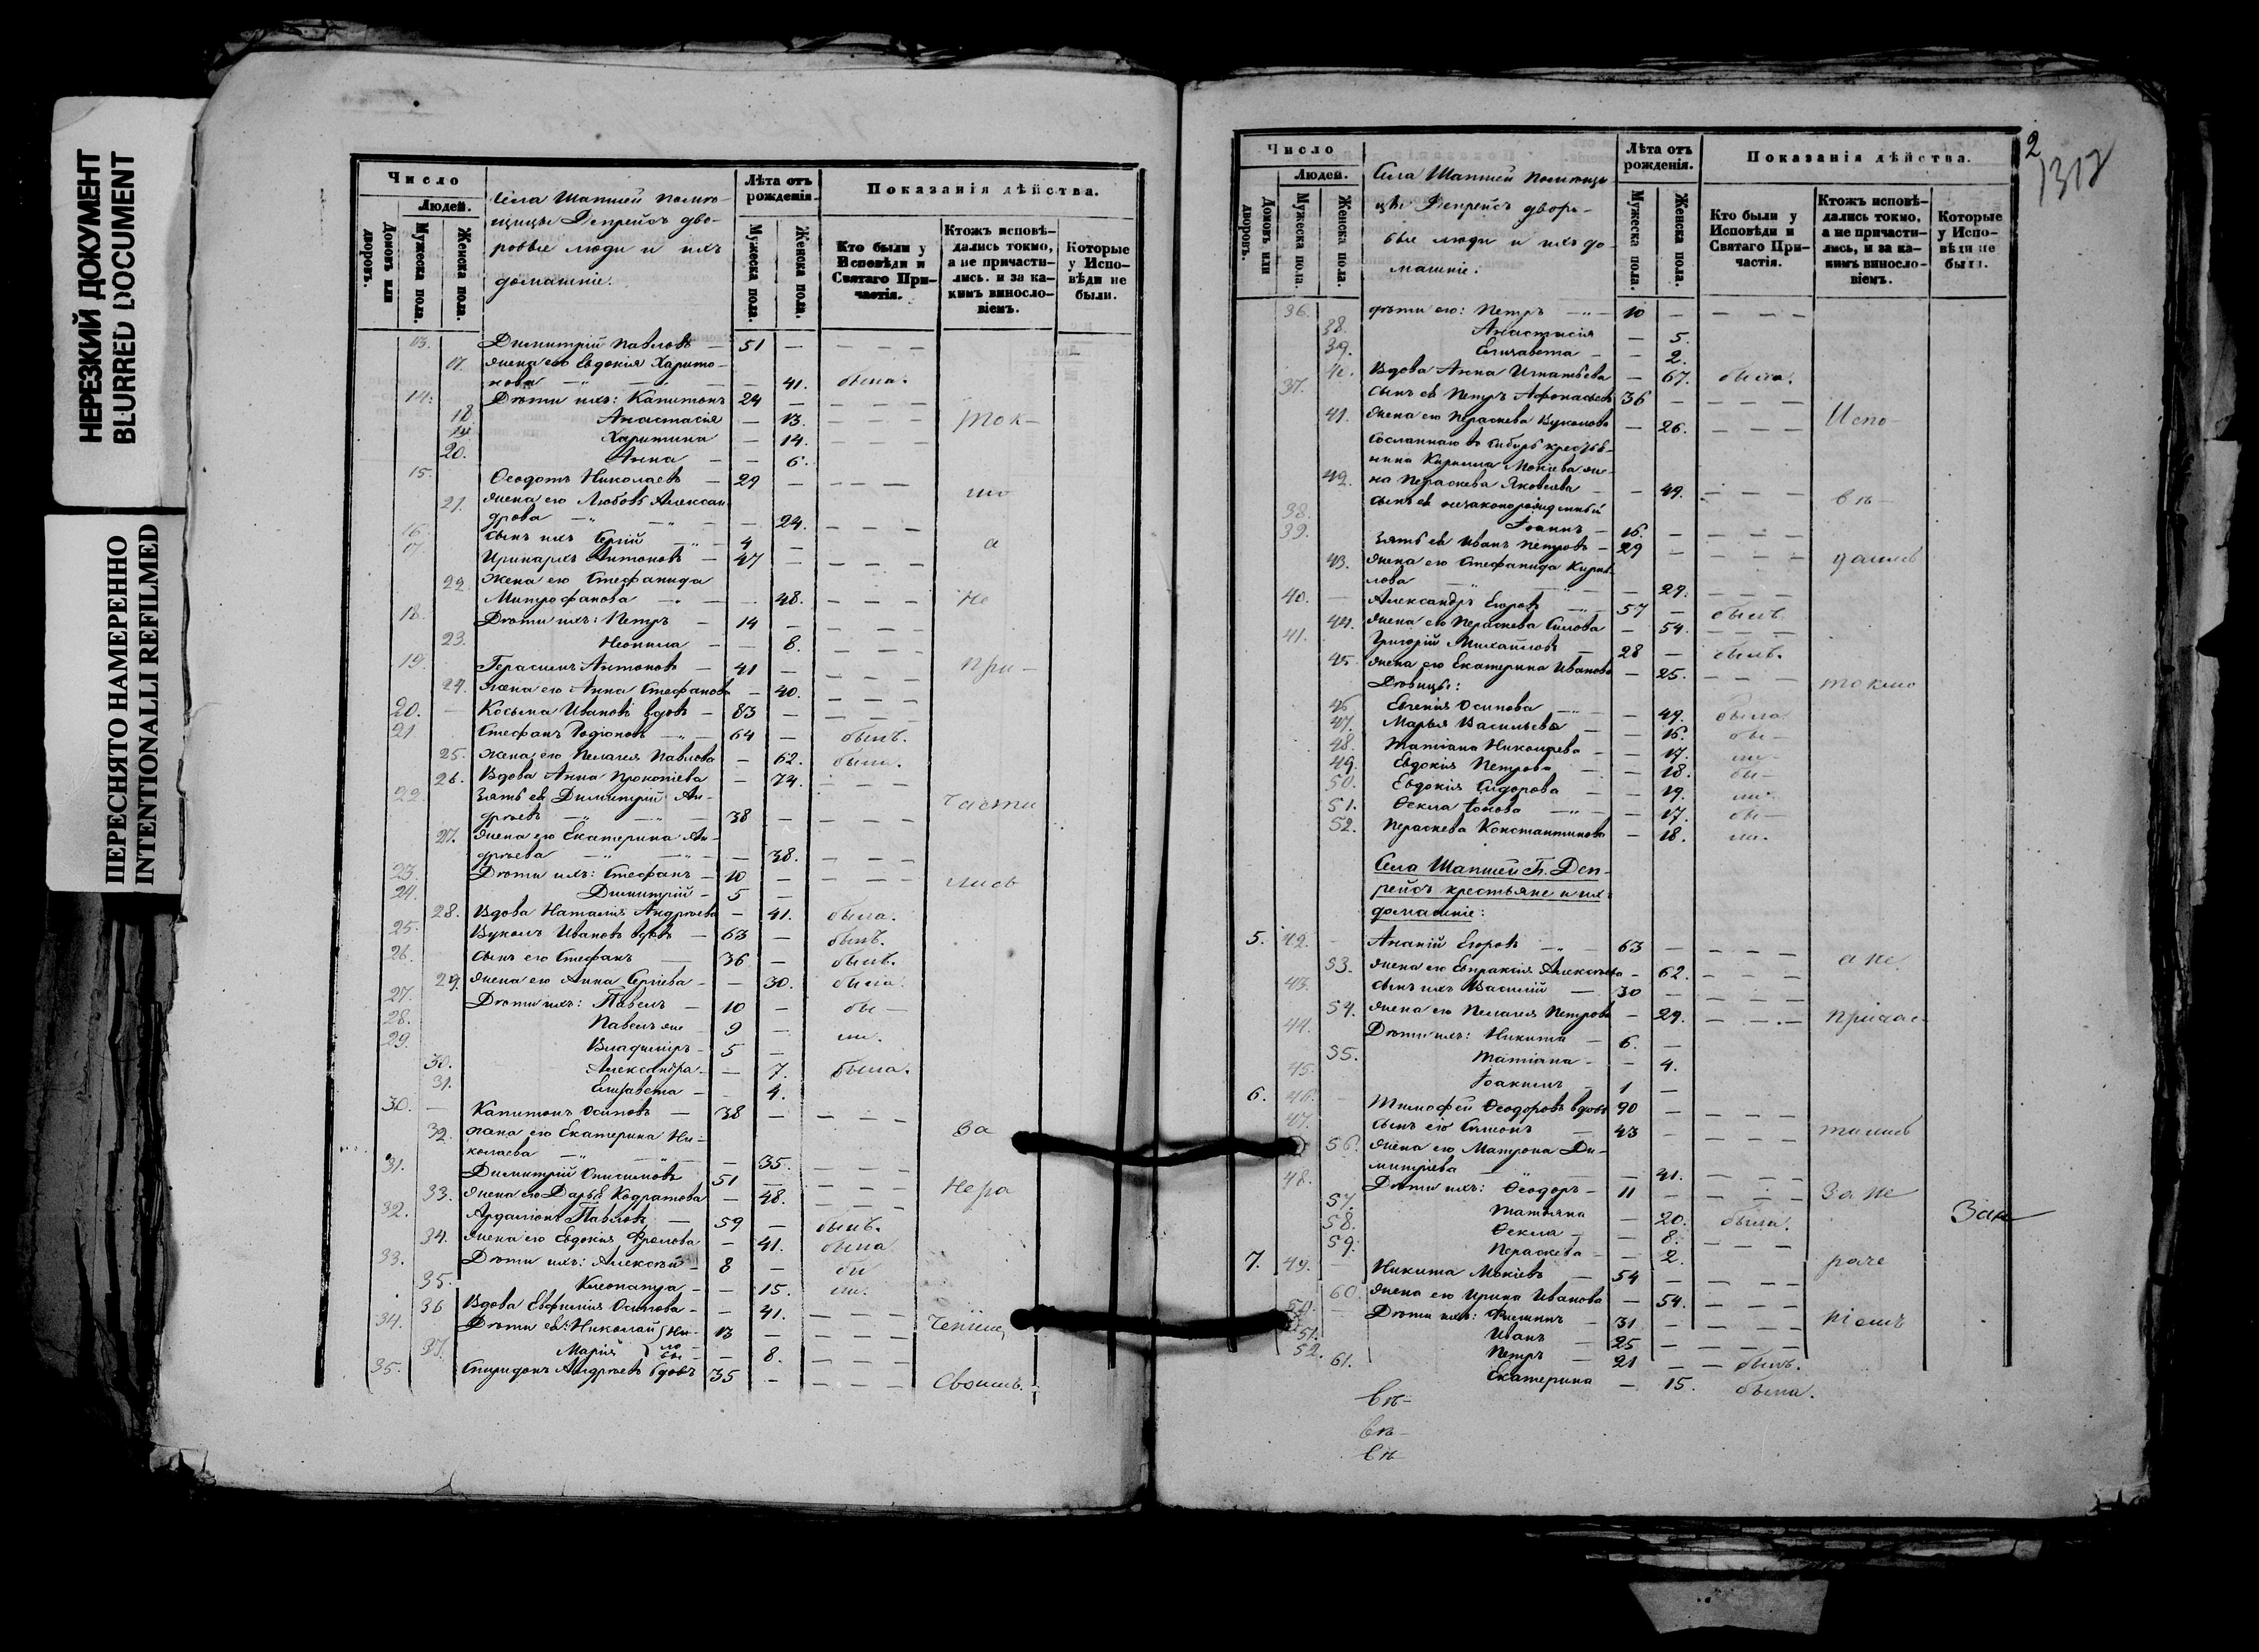 НЕРЕЗКИЙ ДОКУМЕНТ
BLURRED DOCUMENT
ПЕРЕСНЯТО НАМЕРЕННО
INTENTIONALLI REFILMED
Число
Людей.
Домовъ или дворовъ.
Мужеска пола.
Женска пола.
Села Шапшей помѣ-
щицы Депрейсъ дво-
ровые люди и ихъ
домашніе.
Лѣта отъ рожденія.
Мужеска пола.
Женска пола.
Показанія дѣйства.
Кто были у Исповѣди и Святаго При-частія.
Ктожъ исповѣ-дались токмо, а не причасти-лись. и за ка-кимъ винosло-віемъ.
Которые у Испо-вѣди не были.
13. Димитрій Павловъ 51 — — — —
17. жена его Евдокія Харито-
нова — 41. была.
14. Дѣти ихъ: Капитонъ 24 — — — —
18 Анастасія — 13. — — — Ток-
19 Харитина — 14. — — —
20. Анна — 6.
15. Ѳеодотъ Николаевъ — 29 — — — — мо
21. жена его Любовь Алексан
дрова — 24. — — —
16. сынъ ихъ Сергій 4 —
17. Иринархъ Антоновъ — 47 — — — — а
22. жена его Стефанида
Митрофанова — 48. — — — не
18. Дѣти ихъ: Петръ — 14 — — — —
23. Неонила — — 8.
19. Герасимъ Антоновъ — 41 — — — — при-
24. жена его Анна Стефанова — 40. — — —
20. — Косьма Ивановъ вдовъ — 83 — — — —
21 Стефанъ Родіоновъ 64 — былъ.
25. жена его Пелагея Павлова — 62. была.
26. Вдова Анна Прокопіева — 74. — — —
22 Зять ея Димитрій Ан-
дреевъ 38 — — — — части
27. жена его Екатерина Ан-
дреева — 38. — — —
23. Дѣти ихъ: Стефанъ — 10 — — — — лись
24. Димитрій — 5 —
28. Вдова Наталия Андреева — 41. была.
25. Вуколъ Ивановъ вдовъ — 63 — былъ.
26. сынъ его Стефанъ — 36 — былъ.
29. жена его Анна Сергіева — — 30. была.
27. Дѣти ихъ: Павелъ — 10 — бы —
28. Павелъ же 9 — ли.
29. Владиміръ — 5 —
30. Александра — — 7. была.
31. Елизавета — — 4.
30. — Капитонъ Осиповъ — 38 — — — —
32. жена его Екатерина Ни-
колаева — 35. — — — за
31. Димитрій Онисимовъ 51 — — — —
33. жена его Дарья Кодратова — 48. — — — нера
32. Ардаліонъ Павловъ — 59 — былъ.
34. жена его Евдокия Фролова — 41. была
33. Дѣти ихъ: Алексѣй — 8 — бы
35. Клеопатра — — 15. ли.
36 Вдова Евфимия Осипова — — 41.
34. Дѣти ея: Николай 13 — — — —
37. Марія — 8. — — —
35. Спиридонъ Андреевъ вдовъ 35 — — — — своимъ.
2
1317
Число
Людей.
Домовъ или дворовъ.
Мужеска пола.
Женска пола.
Села Шапшей помѣщи
цы Депрейсъ дворо-
вые люди и ихъ до-
машніе.
Лѣта отъ рожденія.
Мужеска пола.
Женска пола.
Показанія дѣйства.
Кто были у Исповѣди и Святаго При-частія.
Ктожъ исповѣ-дались токмо, а не причасти-лись, и за ка-кимъ винosло-віемъ.
Которые у Испо-вѣди не были.
36. дѣти его: Петръ 10 — — — —
38. Анастасія — 5.
39. Елизавета — — 2.
40. Вдова Анна Игнатьева — 67. была.
37. сынъ ея Петръ Афонасьевъ 36 — — — —
41. жена его Пераскева Вуколова — 26. — — — Испо-
Сосланнаго въ Сибирь крестья-
нина Кирилла Мокіева же-
42. на Пераскева Яковлева — 49. — — — вѣ-
38. сынъ ея незаконорожденный
Іоаннъ — 16. — — — —
39. Зять ея Иванъ Петровъ — 29 — — — — дались
43. жена его Стефанида Кирил-
лова — 29. — — —
40. — Александръ Егоровъ 57 — былъ
44. жена его Пераскева Силова — 54. — — —
41. Григорій Михайловъ — 28 — былъ.
45 жена его Екатерина Иванова — 25. — — — токмо
Дѣвицы:
46 Евгенія Осипова — 49. была
47. Марья Васильева — — 16. бы —
48. Татіана Николаева — — 17. ли —
49. Евдокия Петрова — — 18. бы —
50. Евдокия Сидорова — — 19. ли.
51. Ѳекла Іонова — 17. бы —
52. Пераскева Константинова — 18. ли.
Села Шапшей Г. Деп-
рейсъ крестьяне и ихъ
домашніе:
5. 42. Ананій Егоровъ 63 — — — —
53. жена его Евпраксія Алексѣева — 62. — — — а не
43. сынъ ихъ Василій — 30 — — — —
54. жена его Пелагея Петрова — 29. — — — причас-
44. Дѣти ихъ: Никита — 6. —
55. Татіана — — 4.
45. Іоакимъ — 1 —
6. 46. Тимофей Ѳеодоровъ вдовъ 90 — — — —
47. сынъ его Симеонъ — 43 — — — — тились
56. жена его Матрона Ди-
митріева — 41. — — —
48. Дѣти ихъ: Ѳеодоръ — 11 — — — — за не
57. Татьяна — 20. была.
58. Ѳекла — — 8.
59. Пераскева — 2.
7. 49. Никита Мокіевъ — 54 — — — — раче
60. жена его Ирина Иванова — 54. — — —
50. Дѣти ихъ: Филиппъ — 31 — — — — ніемъ
51. Иванъ — 25 — — — —
52. Петръ — 21 — — былъ.
61. Екатерина — 15. была.